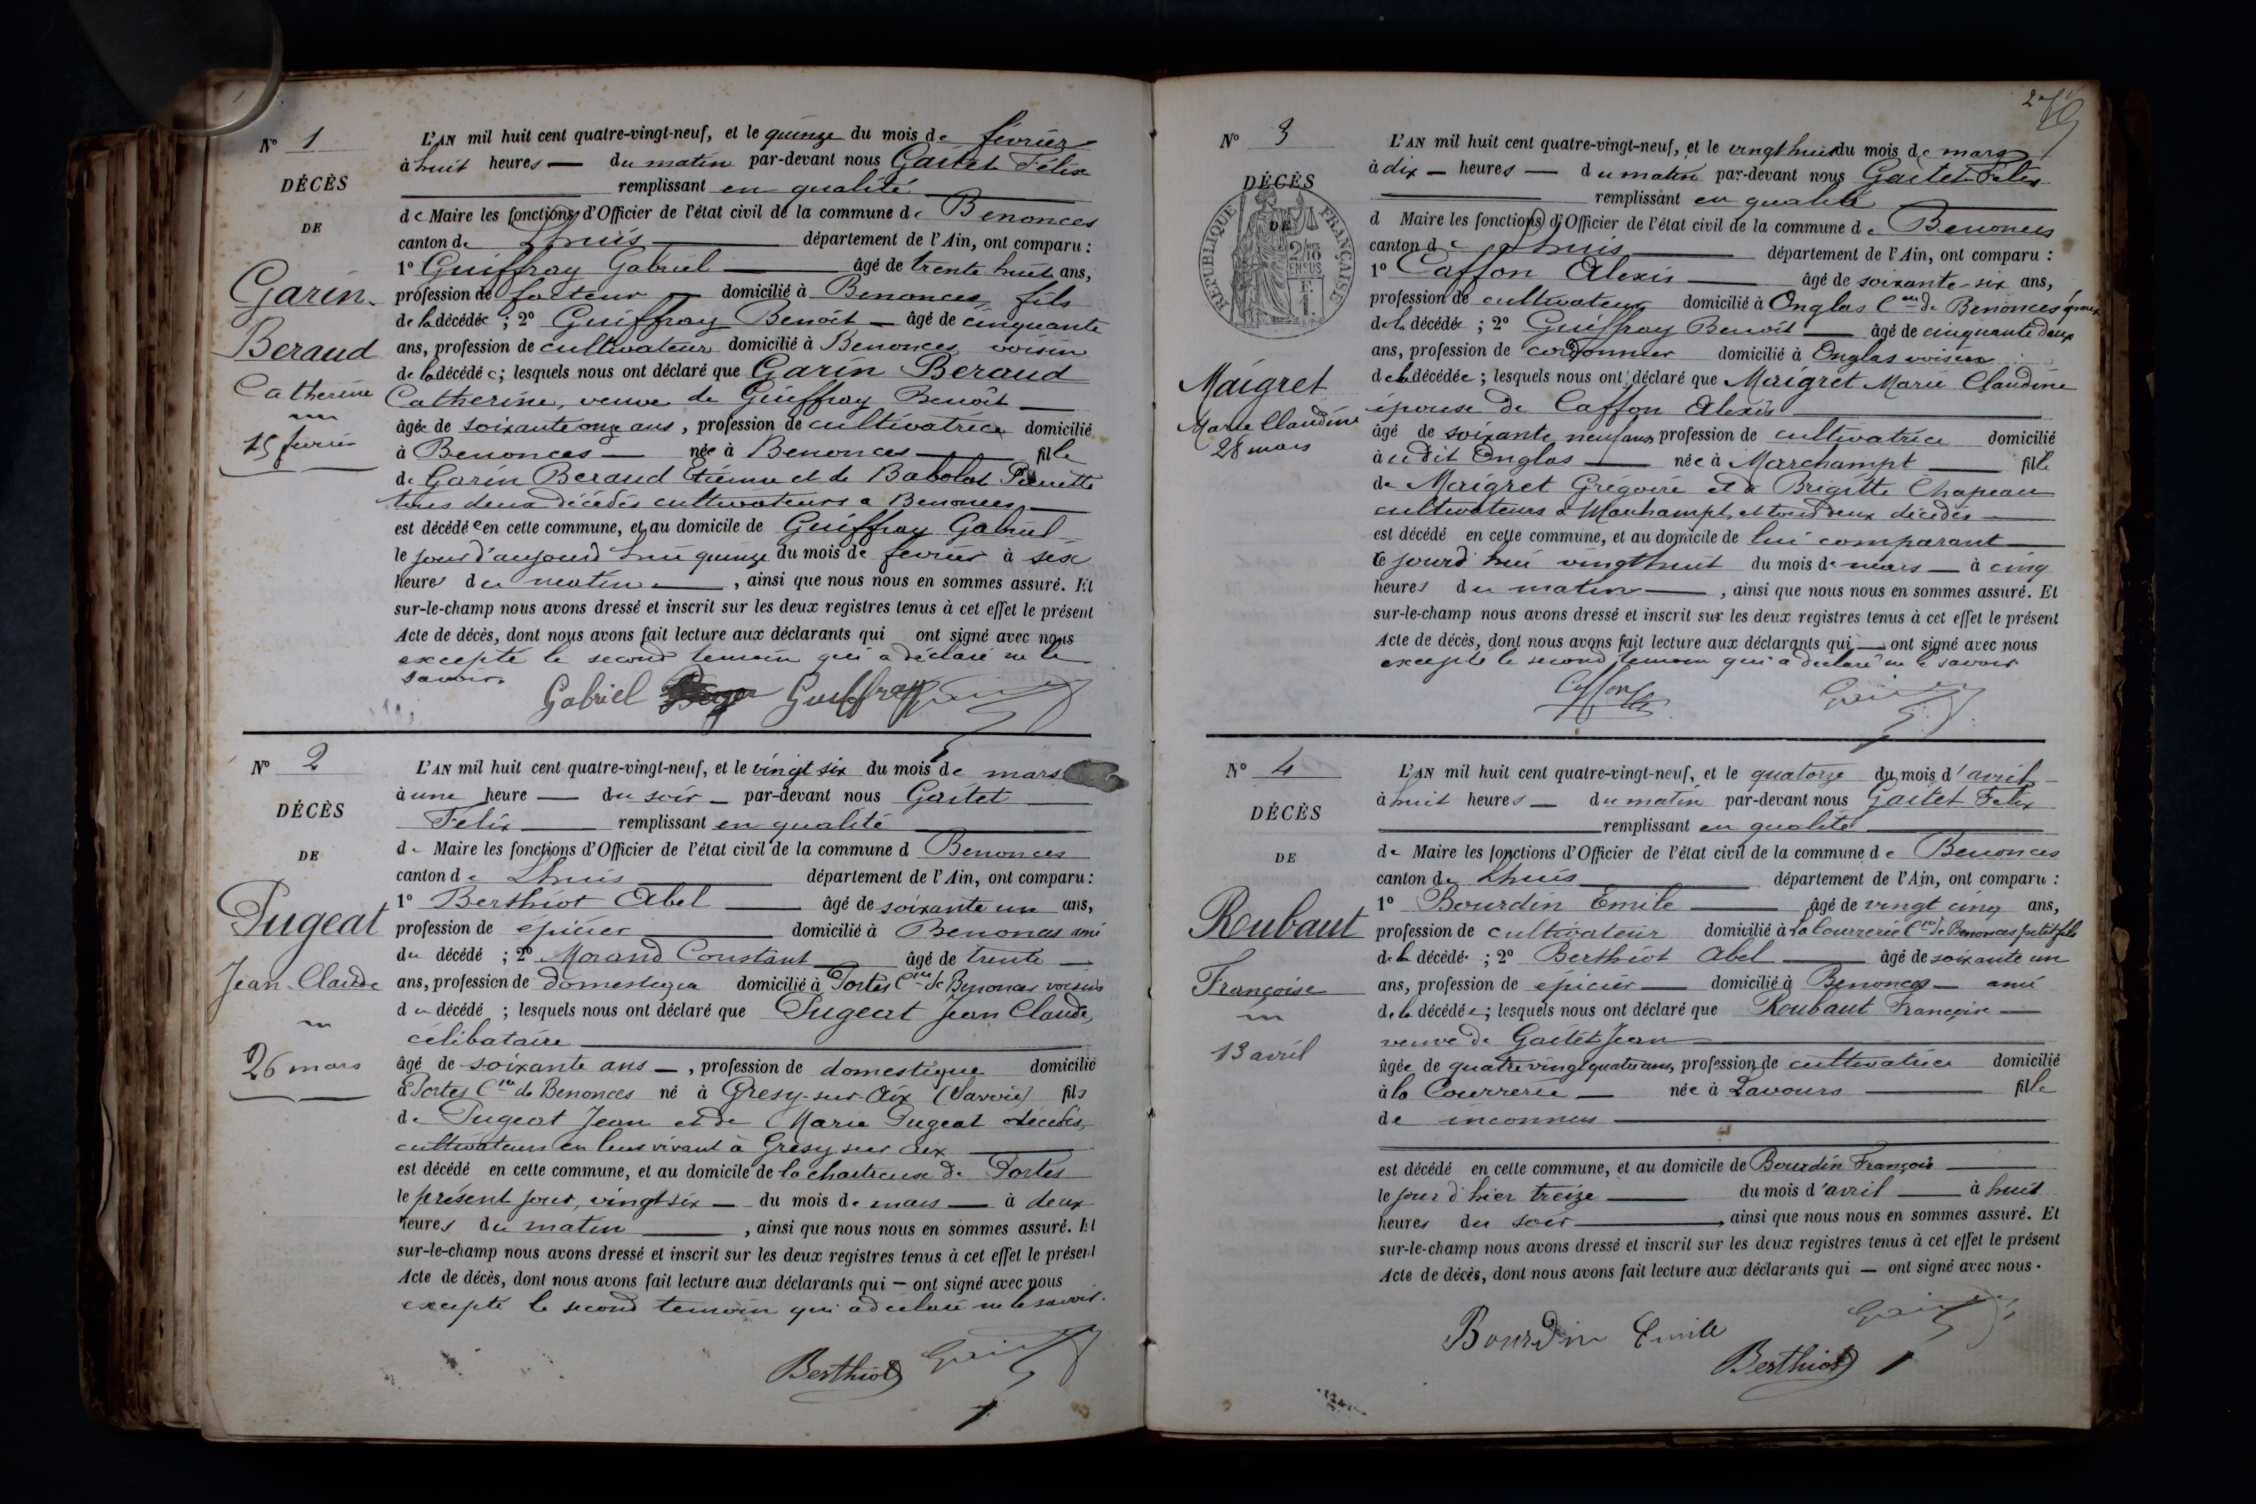 1
Nº 1
DÉCÈS
DE
Garin-
Beraud
Catherine
15 février
L'AN mil huit cent quatre-vingt-neuf, et le quinze du mois de février
à huit heures du matin par-devant nous Gaitet Félix
remplissant en qualité
de Maire les fonctions d'Officier de l'état civil de la commune de Benonces
canton de Lhuis département de l'Ain, ont comparu :
1º Guiffray Gabriel âgé de trente huit ans,
profession de facteur domicilié à Benonces, fils
de la décédée ; 2º Guiffray Benoit âgé de cinquante
ans, profession de cultivateur domicilié à Benonces voisin
de la décédée ; lesquels nous ont déclaré que Garin Beraud
Catherine, veuve de Guiffray Benoit
âgée de soixante onze ans, profession de cultivatrice domicilié
à Benonces née à Benonces fille
de Garin Beraud Etienne et de Babolat Pierrette
tous deux décédés cultivateurs à Benonces
est décédée en cette commune, et au domicile de Guiffray Gabriel
le jour d'aujourd'hui quinze du mois de février à six
heures du matin, ainsi que nous nous en sommes assuré. Et
sur-le-champ nous avons dressé et inscrit sur les deux registres tenus à cet effet le présent
Acte de décès, dont nous avons fait lecture aux déclarants qui ont signé avec nous
excepté le second temoin qui a déclaré ne le
savoir.
Gabriel Guiffray
Nº 2
DÉCÈS
DE
Pugeat
Jean Claude
26 mars
L'AN mil huit cent quatre-vingt-neuf, et le vingt six du mois de mars
à une heure du soir par-devant nous Gaitet
Félix remplissant en qualité
de Maire les fonctions d'Officier de l'état civil de la commune d Benonces
canton de Lhuis département de l'Ain, ont comparu :
1º Berthiot Abel âgé de soixante un ans,
profession de épicier domicilié à Benonces ami
du décédé ; 2º Morand Constant âgé de trente
ans, profession de domestique domicilié à Portes Cne de Benonces voisin
du décédé ; lesquels nous ont déclaré que Pugeat Jean Claude,
célibataire
âgé de soixante ans, profession de domestique domicilié
à Portes Cne de Benonces né à Gresy-sur-Aix (Savoie) fils
de Pugeat Jean et de Marie Pugeat décédés,
cultivateurs en leur vivant à Gresy sur Aix
est décédé en cette commune, et au domicile de la chartreuse de Portes
le présent jour, vingt six du mois de mars à deux
heures du matin, ainsi que nous nous en sommes assuré. Et
sur-le-champ nous avons dressé et inscrit sur les deux registres tenus à cet effet le présent
Acte de décès, dont nous avons fait lecture aux déclarants qui — ont signé avec nous
excepté le second temoin qui a déclaré ne le savoir.
Berthiot
Nº 3
DÉCÈS
DE
RÉPUBLIQUE FRANÇAISE
2/10
EN SUS
Maigret
Marie Claudine
28 mars
L'AN mil huit cent quatre-vingt-neuf, et le vingt huit du mois de mars
à dix heures du matin par-devant nous Gaitet Félix
remplissant en qualité
d Maire les fonctions d'Officier de l'état civil de la commune de Benonces
canton de Lhuis département de l'Ain, ont comparu :
1º Caffon Alexis âgé de soixante-six ans,
profession de cultivateur domicilié à Onglas Cne de Benonces époux
de la décédée ; 2º Guiffray Benoit âgé de cinquante deux
ans, profession de cordonnier domicilié à Onglas voisin
de la décédée ; lesquels nous ont déclaré que Maigret Marie Claudine
épouse de Caffon Alexis
âgé de soixante neuf ans, profession de cultivatrice domicilié
à u dit Onglas née à Marchampt fille
de Maigret Grégoire et de Brigitte Chapeau
cultivateurs à Marchampt, et tous deux décédés
est décédé en cette commune, et au domicile de lui comparant
ce jourd'hui vingt huit du mois de mars à cinq
heures du matin, ainsi que nous nous en sommes assuré. Et
sur-le-champ nous avons dressé et inscrit sur les deux registres tenus à cet effet le présent
Acte de décès, dont nous avons fait lecture aux déclarants qui — ont signé avec nous
excepté le second temoin qui a déclaré ne le savoir
Caffon
Nº 4
DÉCÈS
DE
Roubaut
Françoise
13 avril
L'AN mil huit cent quatre-vingt-neuf, et le quatorze du mois d'avril
à huit heures du matin par-devant nous Gaitet Félix
remplissant en qualité
de Maire les fonctions d'Officier de l'état civil de la commune de Benonces
canton de Lhuis département de l'Ain, ont comparu :
1º Bourdin Emile âgé de vingt cinq ans,
profession de cultivateur domicilié à La Courrerie Cne de Benonces petit fils
de la décédée ; 2º Berthiot Abel âgé de soixante un
ans, profession de épicier domicilié à Benonces ami
de la décédée ; lesquels nous ont déclaré que Roubaut Françoise
veuve de Gaitet Jean
âgée de quatre vingt quatre ans, profession de cultivatrice domicilié
à la Courrerie née à Lavours fille
de inconnus
est décédé en cette commune, et au domicile de Bourdin François
le jour d'hier treize du mois d'avril à huit
heures du soir, ainsi que nous nous en sommes assuré. Et
sur-le-champ nous avons dressé et inscrit sur les deux registres tenus à cet effet le présent
Acte de décès, dont nous avons fait lecture aux déclarants qui — ont signé avec nous.
Bourdin Emile
Berthiot